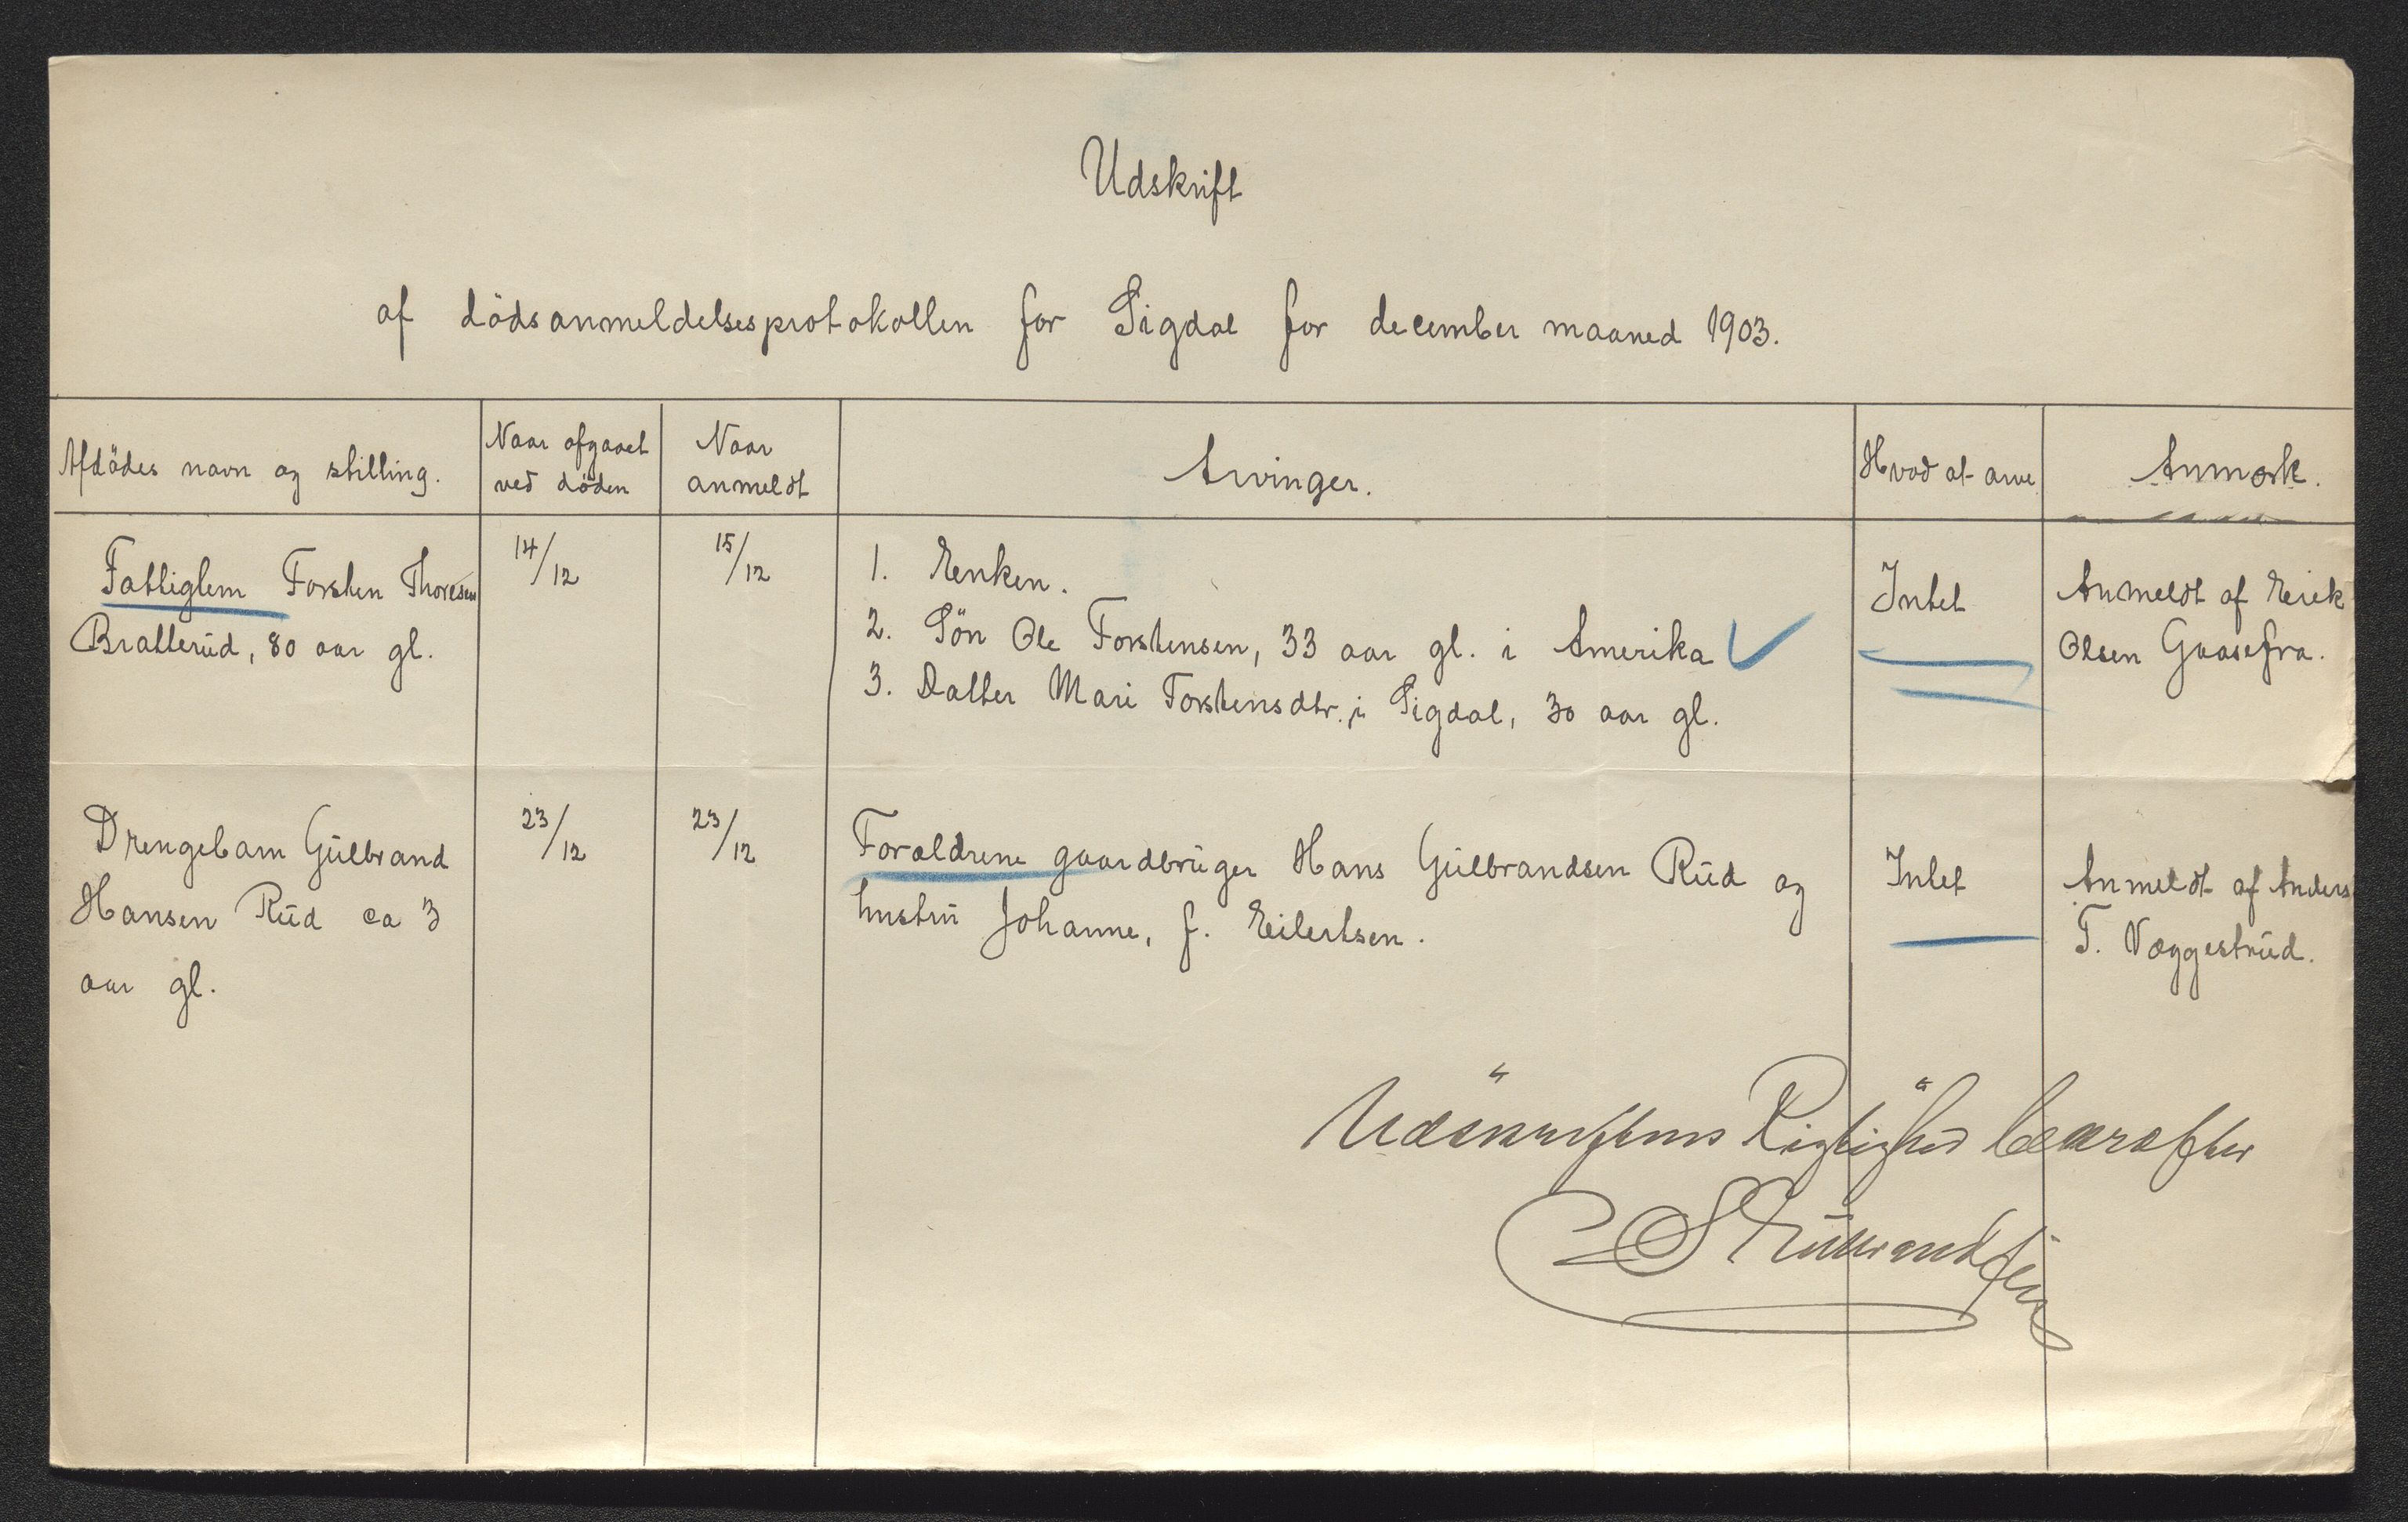 Udskrift
af dödsanmeldelsesprotokollen for Sigdal for december maaned 1903.
Afdödes navn og stilling.
Naar afgaaet
ved döden
Naar
anmeldt
Arvinger.
Hvad at arve
Anmærk.
Fattiglem Torsten Thoresen
Bratterud, 80 aar gl.
14/12
15/12
1. Enken.
2. Sön Ole Torstensen, 33 aar gl. i Amerika
3. Datter Mari Torstensdtr. i Sigdal, 30 aar gl.
Intet
Anmeldt af Erik
Olsen Gaasefra.
Drengebarn Gulbrand
Hansen Rud ca 3
aar gl.
23/12
23/12
Forældrene gaardbruger Hans Gulbrandsen Rud og
hustru Johanne, f. Eilertsen.
Intet
Anmeldt af Anders
T. Væggestrud.
Udskriftens Rigtighed bekræfter